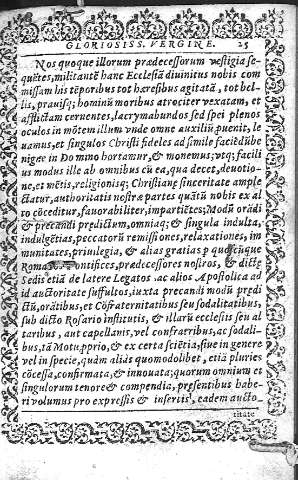 GLORIOSISS. VERGINE. 25
Nos quoque illorum prædecessorum vestigia se-
quẽtes, militantẽ hanc Ecclesiã diuinitus nobis com
missam his tẽporibus tot hæresibus agitatã, tot bel-
lis, prauisq; hominũ moribus atrociter vexatam, et
afflictam cernentes, lacrymabundos sed spei plenos
oculos in mõtem illum vnde omne auxiliũ puenit, le
uamus, et singulos Christi fideles ad simile faciẽdũ be
nigne in Domino hortamur, & monemus; vtq; facili
us modus ille ab omnibus cũ ea, qua decet, deuotio-
ne, et mẽtis, religionisq; Christianę sinceritate ample
ctatur, authoritatis nostræ partes quãtũ nobis ex al
to cõceditur, fauorabiliter, impartiẽtes; Modũ orãdi
& precandi predictum, omniaq; & singula indulta,
indulgẽtias, peccatorũ remissiones, relaxationes, im
munitates, priuilegia, & alias gratias p quoscũque
Roma Pontifices, prædecessores nostros, & dictę
Sedis etiã de latere Legatos ac altos Apostolica ad
id auctoritate suffultos, iuxta precandi modũ predi
ctũ, orãtibus, et Cõfraternitatibus seu sodalitatibus,
sub dicto Rosario institutis, & illarũ ecclesiis seu al
taribus, aut capellanis, vel confrarribus, ac sodali-
bus, tã Motu proprio, & ex certa sciẽtia, siue in genere
vel in specie, quàm aliàs quomodolibet, etiã pluries
cõcessa, confirmata, & innouata; quorum omnium et
singulorum tenore & compendia, presentibus habe-
ri volumus pro expressis & insertis, eadem aucto-
ritate